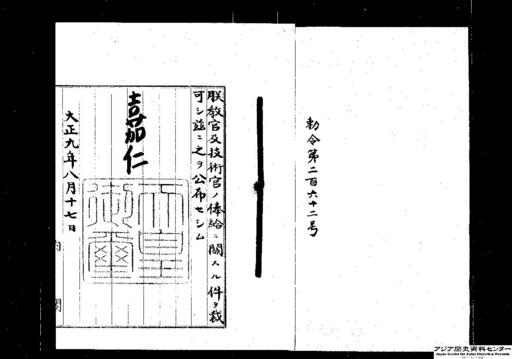 勅令第二百六十二号
朕教官及技術官ノ俸給ニ関スル件ヲ裁
可シ茲ニ之ヲ公布セシム
嘉仁
天皇
御璽
大正九年八月十七日
内閣
アジア歴史資料センター
Japan Center for Asian Historical Records